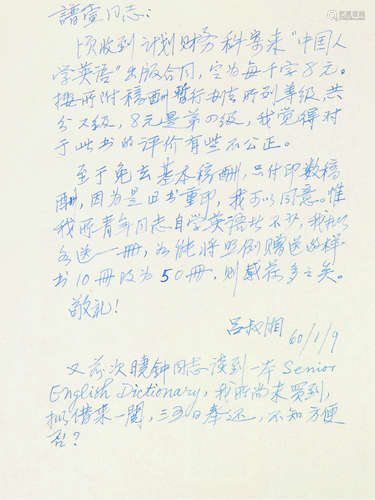 谱萱同志：
顷收到计划财务科寄来“中国人
学英语”出版合同，定为每千字8元。
按所附稿酬暂行办法所列等级，共
分5级，8元是第四级，我觉得对
于此书的评价有些不公正。
至于免去基本稿酬，只付印数稿
酬，因为是旧书重印，我可以同意。惟
我所青年同志自学英语者不少，我拟
各送一册，如能将照例赠送的样
书10册改为50册，则感荷多多矣。
敬礼！
吕叔湘 60/1/9
又前次晓钟同志谈到一本 Senior
English Dictionary，我所尚未买到，
拟借来一阅，三五日奉还，不知方便
否？